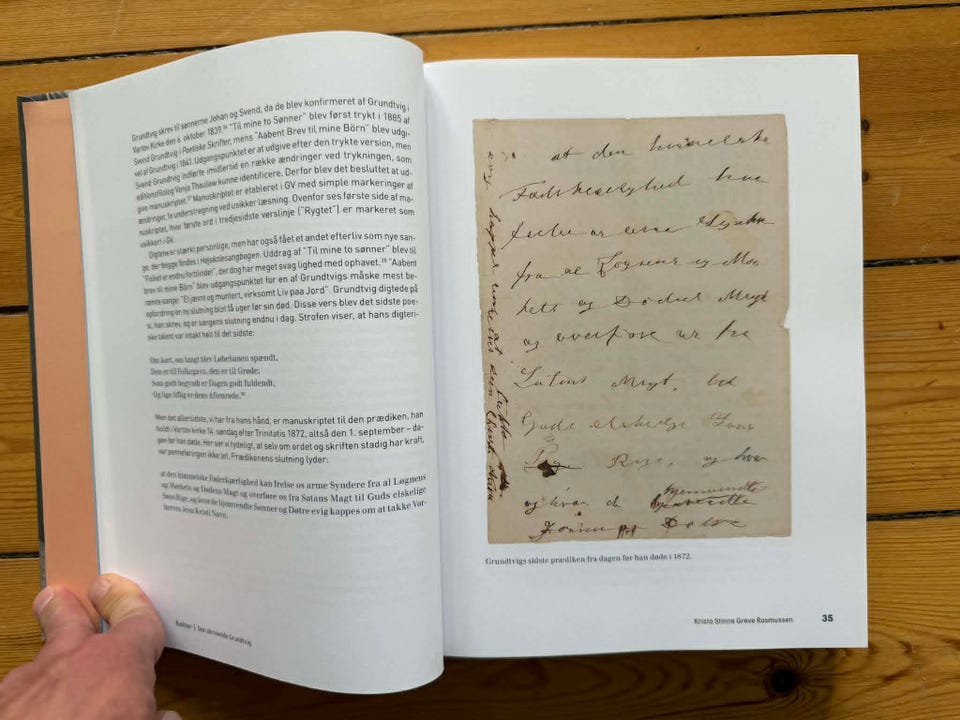 Grundtvig skrev til sønnerne Johan og Svend, da de blev konfirmeret af Grundtvig i
Vartov Kirke den 6. oktober 1839. "Til mine to Sønner" blev først trykt i 1885 af
Svend Grundtvig i Poetiske Skrifter, mens "Aabent Brev til mine Börn" blev udgi-
vet af Grundtvig i 1841. Udgangspunktet er at udgive efter den trykte version, men
Svend Grundtvig indførte imidlertid en række ændringer ved trykningen, som
editionsfilolog Vanja Thaulow kunne identificere. Derfor blev det besluttet at ud-
give manuskriptet. Manuskriptet er etableret i GV med simple markeringer af
ændringer, fx understregning ved usikker læsning. Ovenfor ses første side af ma-
nuskriptet, hvor første ord i tredjesidste verslinje ("Rygtet") er markeret som
usikkert i GV.
Digtene er stærkt personlige, men har også fået et andet efterliv som nye san-
ge, der begge findes i Højskolesangbogen. Uddrag af "Til mine to sønner" blev til
"Folket er endnu forblindet", der dog har meget svag lighed med ophavet. "Aabent
brev til mine Börn" blev udgangspunktet for en af Grundtvigs måske mest be-
rømte sange: "Et jævnt og muntert, virksomt Liv paa Jord". Grundtvig digtede på
opfordring en ny slutning blot få uger før sin død. Disse vers blev det sidste poe-
si, han skrev, og er sangens slutning endnu i dag. Strofen viser, at hans digteri-
ske talent var intakt helt til det sidste:
Om kort, om langt blev Løbebanen spændt,
Den er til Folkegavn, den er til Grøde;
Som godt begyndt er Dagen godt fuldendt,
Og lige liflig er dens Aftenrøde.
Men det allersidste, vi har fra hans hånd, er manuskriptet til den prædiken, han
holdt i Vartov Kirke 14. søndag efter Trinitatis 1872, altså den 1. september – da-
gen før han døde. Her ser vi tydeligt, at selv om ordet og skriften stadig har kraft,
var penneføringen ikke let. Prædikenens slutning lyder:
at den himmelske Faderkjærlighed kan frelse os arme Syndere fra al Løgnens
og Mørkets og Dødens Magt og overføre os fra Satans Magt til Guds elskelige
Søns Rige, og hvor de hjemvendte Sønner og Døtre evig kappes om at takke Vor-
herres Jesu Kristi Navn.
Kapitel 1. Den skrivende Grundtvig
at den himmelske
og Dødens Magt
og overføre os fra
Satans Magt,
Guds elskelige Søns
Rige, og hvor
og hvor de hjemvendte
Grundtvigs sidste prædiken fra dagen før han døde i 1872.
Krista Stinne Greve Rasmussen 35